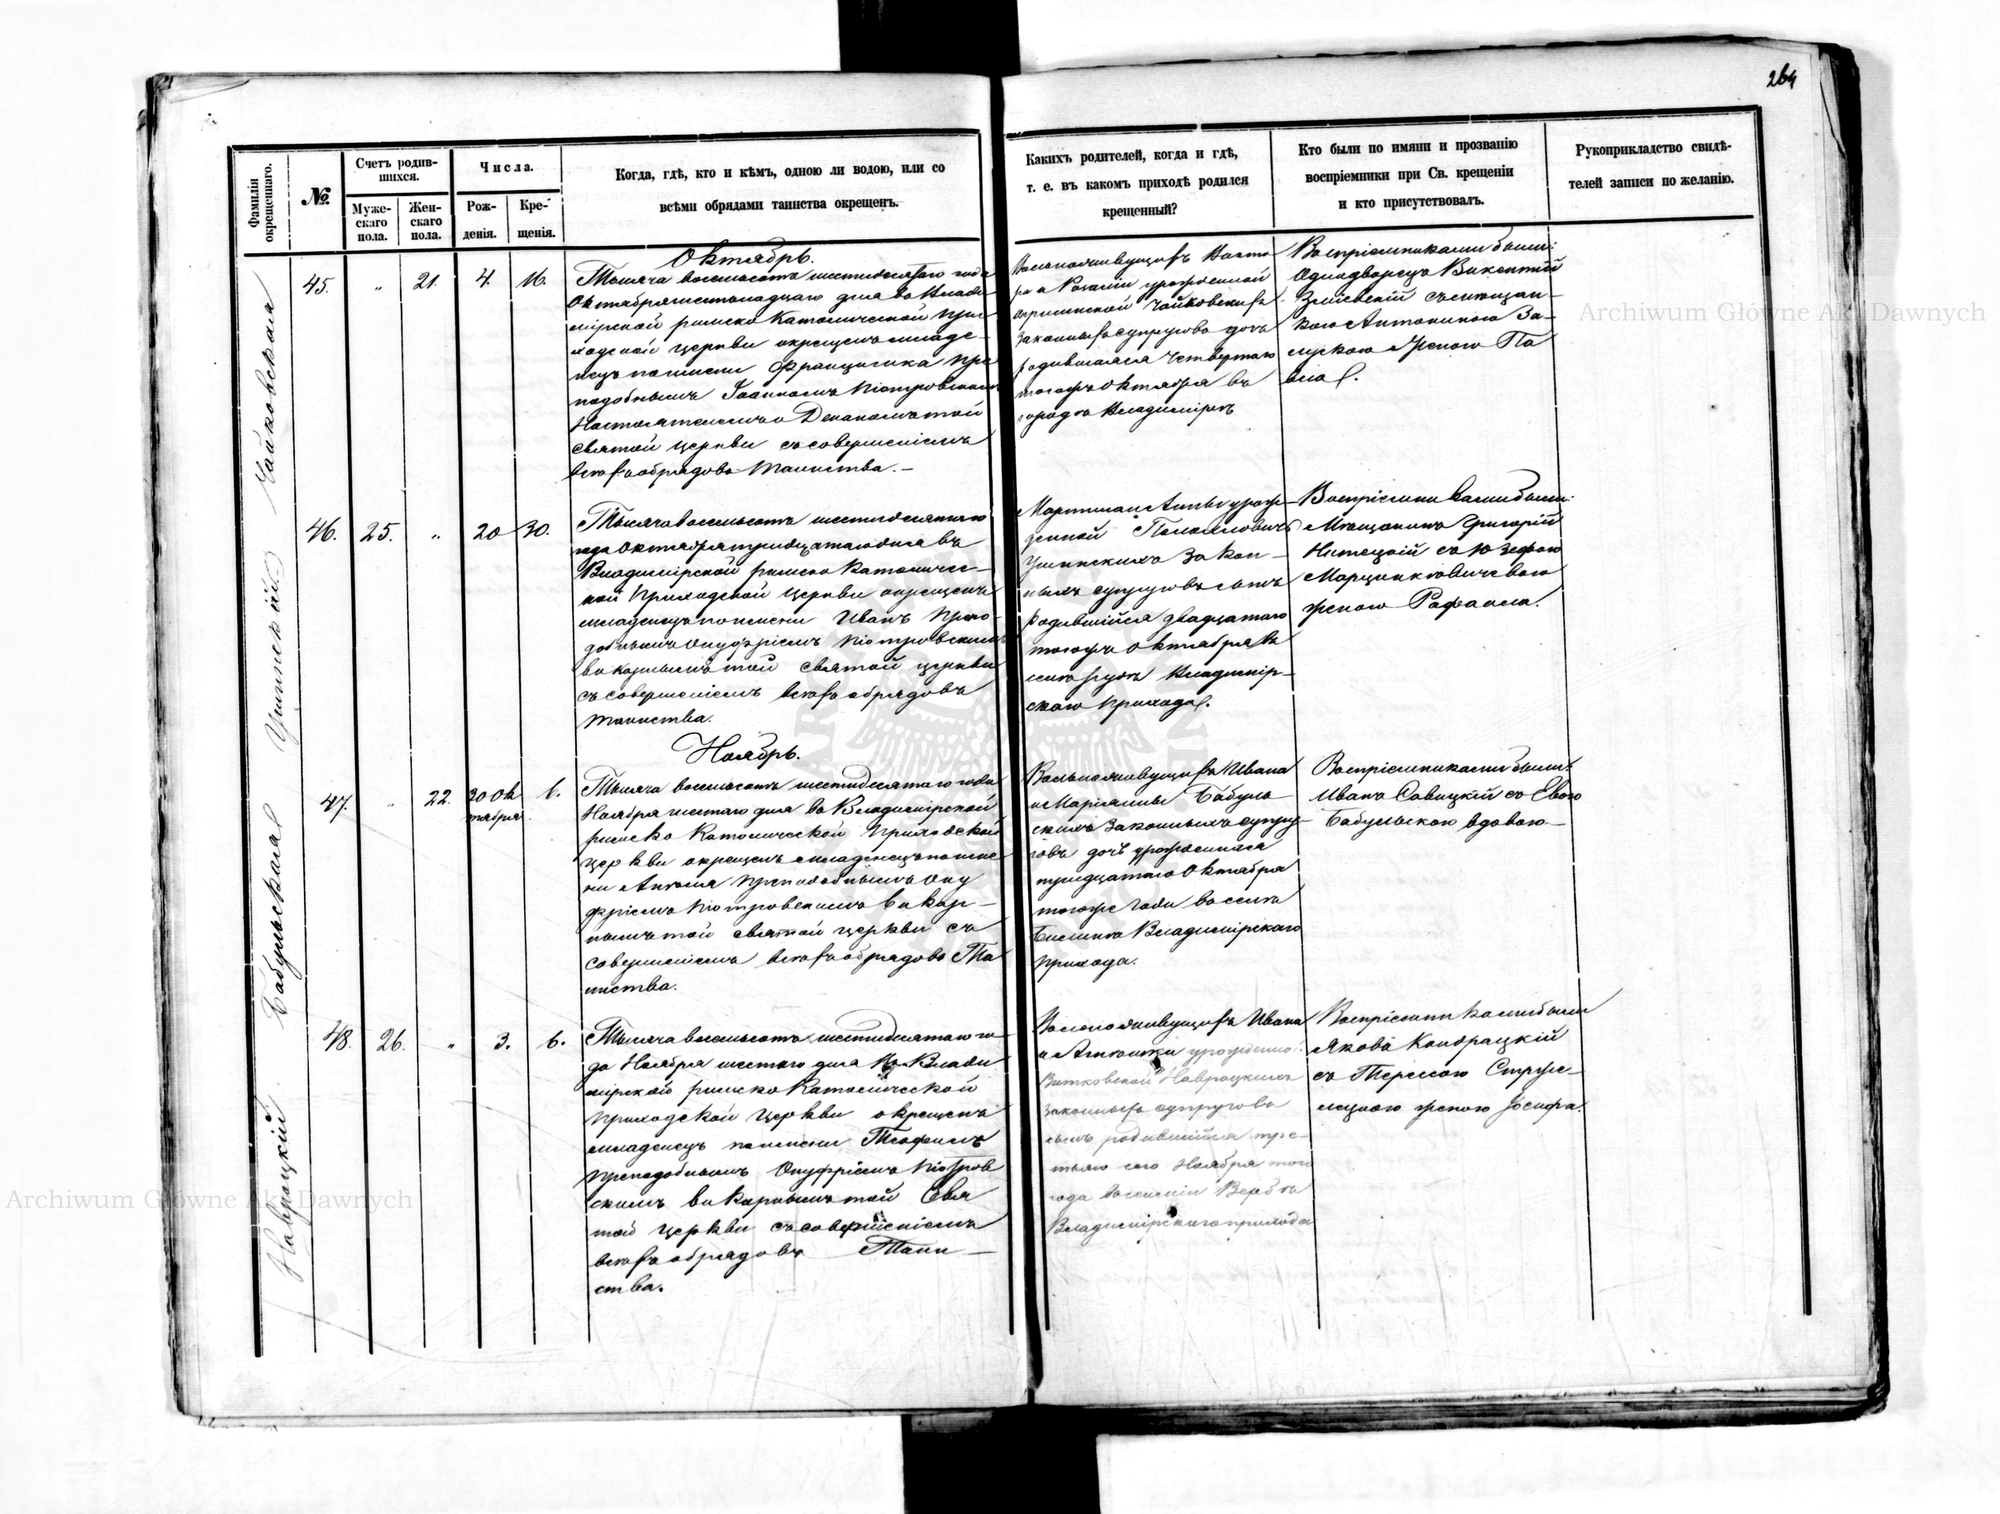 264
Фамилія окрещеннаго.
№.
Счетъ родив-
шихся.
Муже-
скаго
пола.
Жен-
скаго
пола.
Числа.
Рож-
денія.
Кре-
щенія.
Когда, гдѣ, кто и кѣмъ, одною ли водою, или со
всѣми обрядами таинства окрещенъ.
Какихъ родителей, когда и гдѣ,
т. е. въ какомъ приходѣ родился
крещенный?
Кто были по имяни и прозванію
воспріемники при Св. крещеніи
и кто присутствовалъ.
Рукоприкладство свидѣ-
телей записи по желанію.
Октябрь.
Чайковская
45. „ 21. 4. 16.
Тысяча восемьсотъ шестидесятаго года
Октября шестонадцаго дня во Влади-
мірской римско Католической при-
ходской церкви окрещенъ младе-
нецъ по имени Францишка пре
подобнымъ Іоанномъ Піотровскимъ
Настоятелемъ и Деканомъ той
святой церкви съ совершеніемъ
всѣхъ обрядовъ таинства.—
Вольноживущихъ Викто
ра и Розаліи урожденной
Чайковскихъ
законныхъ супруговъ дочь
родившаяся четвертаго
тогожъ Октября въ
городѣ Владимірѣ
Воспріемниками были:
Однодворецъ Викентій
съ мѣщан-
кою Антониною За-
женою Па
вла.
Ушинскій
46. 25. „ 20 30.
Тысяча восемьсотъ шестидесятаго
года Октября тридцатаго дня въ
Владимірской римско Католичес-
кой Приходской церкви окрещенъ
младенецъ по имени Иванъ Препо-
добнымъ Онуфріемъ Піотровскимъ
викарнымъ той святой церкви
съ совершеніемъ всѣхъ обрядовъ
таинства.
Мартина и Анны урож-
денной
Ушинскихъ Закон-
ныхъ супруговъ сынъ
родившійся двадцатаго
тогожъ Октября въ
Владимір-
скаго прихода.
Воспріемниками были:
Мѣщанинъ Григорій
Нитецкій съ Юзефою
Марцинкевичевою
женою Рафаила.
Ноябрь.
Бабульская
47. „ 22. 30 Ок
тября 6.
Тысяча восемьсотъ шестидесятаго года
Ноября шестаго дня во Владимірской
римско Католической Приходской
церкви окрещенъ младенецъ по име
ни Анеля преподобнымъ Ону
фріемъ Піотровскимъ викар-
нымъ той святой церкви съ
совершеніемъ всѣхъ обрядовъ Та
инства.
Вольноживущихъ Ивана
и Маріанны Бабуль
скихъ Законныхъ супру-
говъ дочь урожденная
тридцатаго Октября
тогоже года во селѣ
Владимірскаго
прихода.
Воспріемниками были:
Иванъ Савицкій съ Евою
Бабульскою вдовою—
Навроцкій
48. 26. „ 3. 6.
Тысяча восемьсотъ шестидесятаго го-
да Ноября шестаго дня въ Влади
мірской римско Католической
Приходской церкви окрещенъ
младенецъ по имени Теофилъ
преподобнымъ Онуфріемъ Піотров
скимъ викарнымъ той Свя
той церкви съ совершеніемъ
всѣхъ обрядовъ Таин—
ства.
Вольноживущихъ Ивана
и Антонины урожденно
Витковской Навроцкихъ
законныхъ супруговъ
сынъ родившійся тре-
тьяго сего Ноября того
года во селеніи Вербѣ
Владимірскаго прихода
Воспріемниками были
Яковъ Кондрацкій
съ Терезою Струже-
женою Іосифа.
Archiwum Główne Akt Dawnych
Archiwum Główne Akt Dawnych